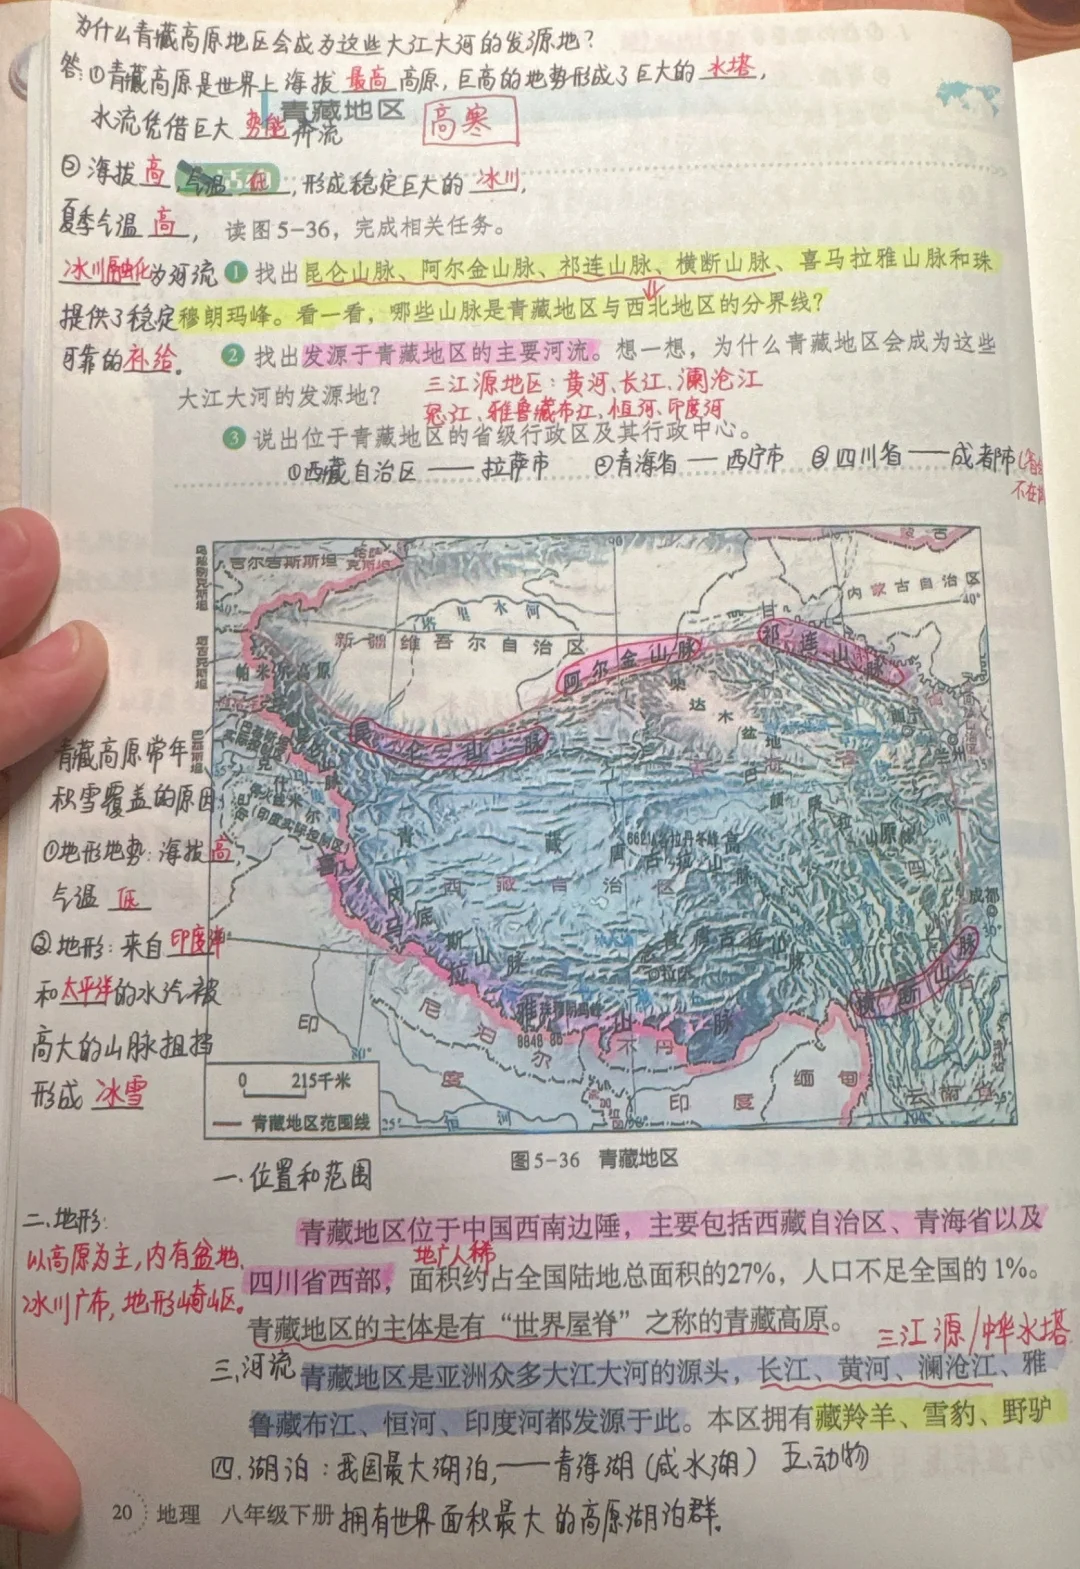 为什么青藏高原地区会成为这些大江大河的发源地?
答:①青藏高原是世界上海拔 最高 高原,巨高的地势形成了巨大的 水塔,
青藏地区
高寒
水流凭借巨大 势能 奔流
②海拔 高,气温 低,形成稳定巨大的 冰川,
夏季气温 高,
冰川融化为河流
提供了稳定
可靠的补给。
读图5-36,完成相关任务。
1 找出昆仑山脉、阿尔金山脉、祁连山脉、横断山脉、喜马拉雅山脉和珠
穆朗玛峰。看一看,哪些山脉是青藏地区与西北地区的分界线?
2 找出发源于青藏地区的主要河流。想一想,为什么青藏地区会成为这些
三江源地区:黄河、长江、澜沧江
大江大河的发源地?
怒江、雅鲁藏布江、恒河、印度河
3 说出位于青藏地区的省级行政区及其行政中心。
①西藏自治区 —— 拉萨市 ②青海省 — 西宁市 ③四川省 —— 成都市
不在
吉尔吉斯斯坦
内蒙古自治区
40°
40°
塔里木河
新疆维吾尔自治区
甘
阿尔金山脉
祁连山脉
帕米尔高原
柴达木盆地
昆仑山脉
兰州
青藏高原
巴颜喀拉山脉
6621
唐古拉山脉
西藏自治区
四
成都
冈底斯山脉
念青唐古拉山脉
拉萨
30°
喜马拉雅山脉
珠穆朗玛峰
8848.86
横断山脉
尼泊尔
不丹
印度
80°
缅甸
云南省
印度
恒河
25°
25°
0 215千米
青藏地区范围线
图5-36 青藏地区
青藏高原常年
积雪覆盖的原因
①地形地势:海拔高,
气温 低
②地形:来自印度洋
和太平洋的水汽被
高大的山脉阻挡
形成 冰雪
一.位置和范围
二.地形:
以高原为主,内有盆地、
冰川广布,地形崎岖。
青藏地区位于中国西南边陲,主要包括西藏自治区、青海省以及
地广人稀
四川省西部,面积约占全国陆地总面积的27%,人口不足全国的1%。
青藏地区的主体是有“世界屋脊”之称的青藏高原。
三江源/中华水塔
三.河流
青藏地区是亚洲众多大江大河的源头,长江、黄河、澜沧江、雅
鲁藏布江、恒河、印度河都发源于此。本区拥有藏羚羊、雪豹、野驴
四.湖泊:我国最大湖泊,——青海湖(咸水湖) 五.动物
20 地理 八年级下册
拥有世界面积最大的高原湖泊群。